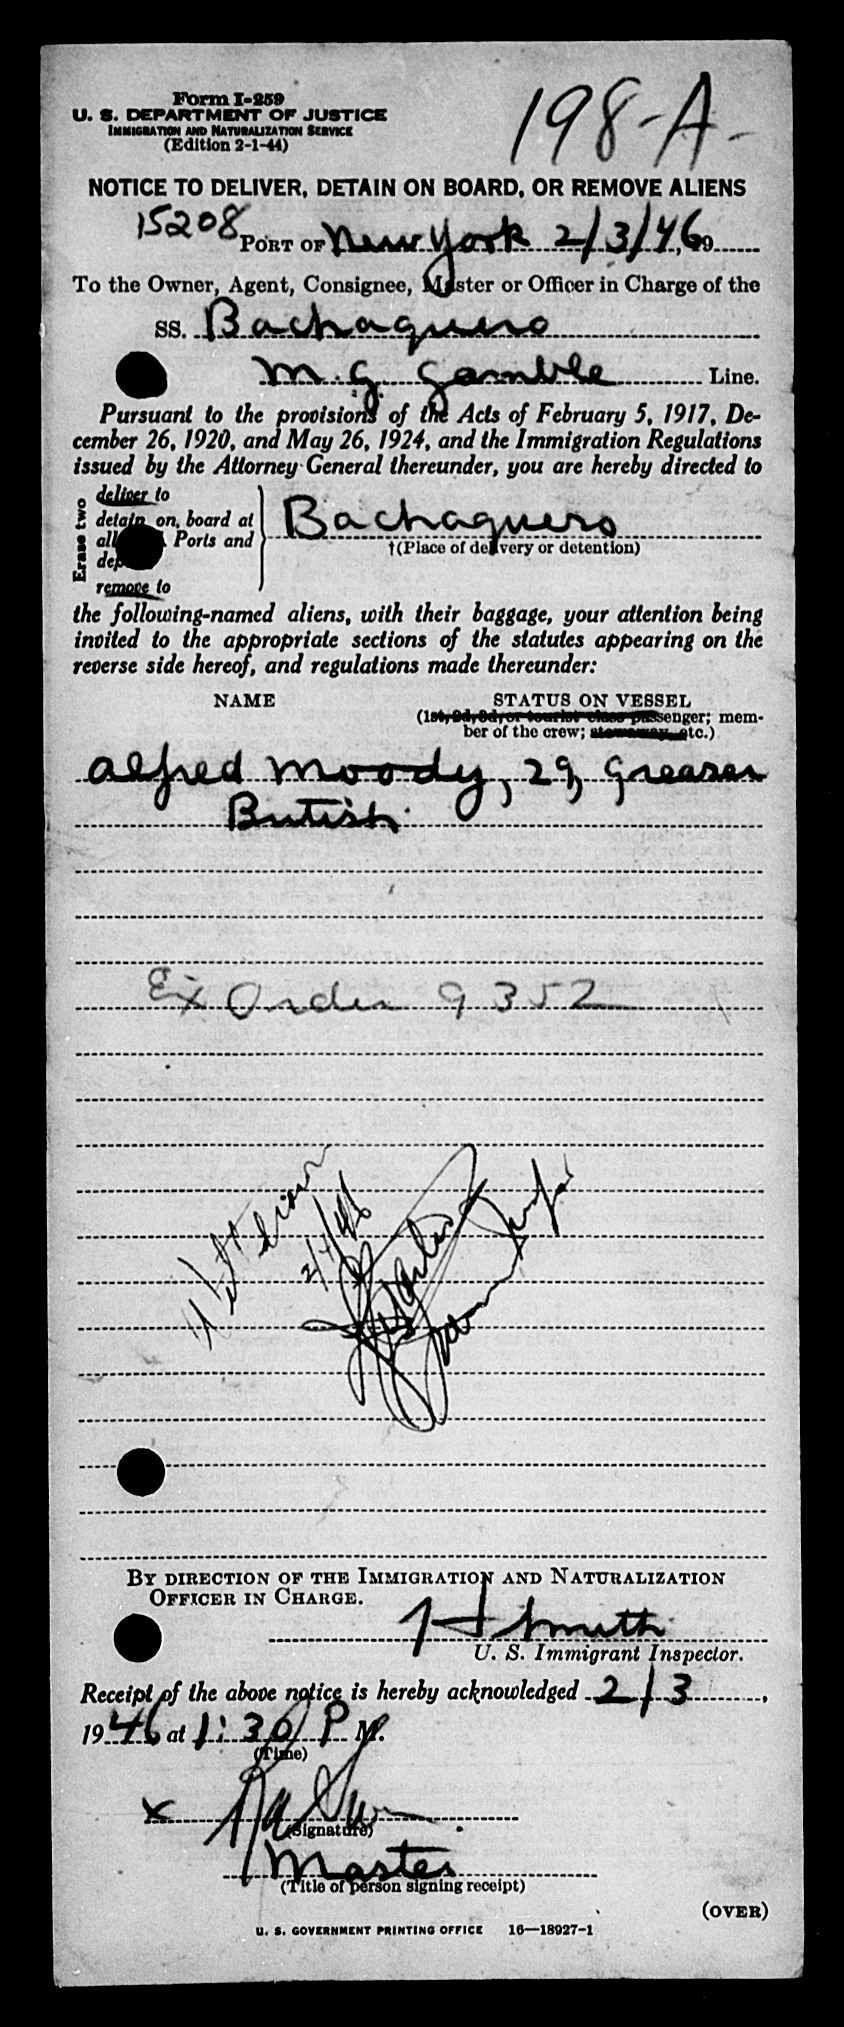 Form I-259
198-A-
U. S. DEPARTMENT OF JUSTICE
IMMIGRATION AND NATURALIZATION SERVICE
(Edition 2-1-44)
NOTICE TO DELIVER, DETAIN ON BOARD, OR REMOVE ALIENS
15208
PORT OF New York 2/3/46, 19
To the Owner, Agent, Consignee, Master or Officer in Charge of the
SS. Bachaquero
M. G. Gamble Line.
Pursuant to the provisions of the Acts of February 5, 1917, De-
cember 26, 1920, and May 26, 1924, and the Immigration Regulations
issued by the Attorney General thereunder, you are hereby directed to
Erase two
deliver to
detain on board at
all Ports and
remove to
Bachaquero
†(Place of delivery or detention)
the following-named aliens, with their baggage, your attention being
invited to the appropriate sections of the statutes appearing on the
reverse side hereof, and regulations made thereunder:
NAME STATUS ON VESSEL
(1st, 2d, 3d, or tourist class passenger; mem-
ber of the crew; stowaway, etc.)
Alfred Moody, 29, Greaser
British
Ex Order 9352
Withdrawn
2/4/46
BY DIRECTION OF THE IMMIGRATION AND NATURALIZATION
OFFICER IN CHARGE.
H Smith
U. S. Immigrant Inspector.
Receipt of the above notice is hereby acknowledged 2/3,
1946 at 1:30 P M.
(Time)
x
(Signature)
Master
(Title of person signing receipt)
(OVER)
U. S. GOVERNMENT PRINTING OFFICE 16—18927-1